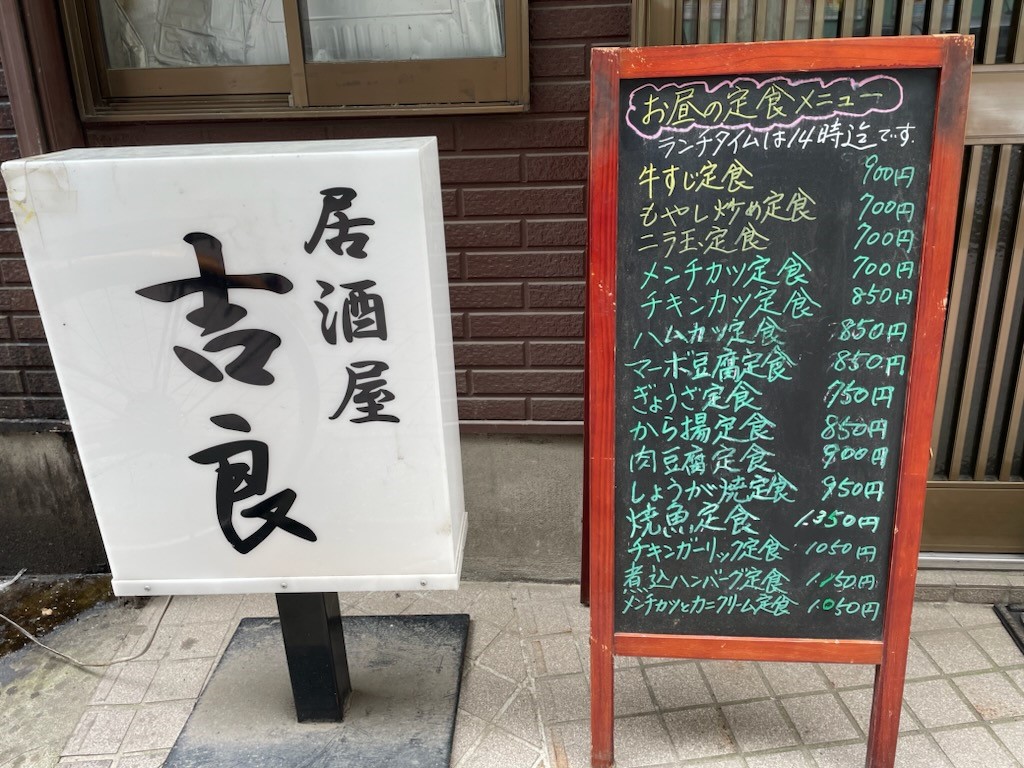 居酒屋
吉良
お昼の定食メニュー
ランチタイムは14時迄です.
牛すじ定食 900円
もやし炒め定食 700円
ニラ玉定食 700円
メンチカツ定食 700円
チキンカツ定食 850円
ハムカツ定食 850円
マーボ豆腐定食 850円
ぎょうざ定食 750円
から揚定食 850円
肉豆腐定食 900円
しょうが焼定食 950円
焼魚定食 1.350円
チキンガーリック定食 1050円
煮込ハンバーグ定食 1.150円
メンチカツとカニクリーム定食 1.050円